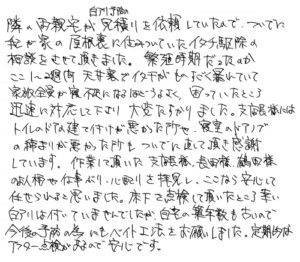 白アリ予防の
隣の両親宅が見積りを依頼していたので、ついでに
私が家の屋根裏に住みついていたイタチ駆除の
相談をさせて頂きました。繁殖時期だったのか
ここ1〜2週間 天井裏でイタチがものすごく暴れていて
家族全員が寝不足になるほどうるさく、困っていたところ
迅速に対応して下さり大変たすかりました。支店長様には
トイレのドアの建て付けが悪かった所や、寝室のドアノブ
の締まりが悪かった所もついでに直して頂き感謝
しています。作業して頂いた支店長様、長田様、鶴田様
のお人柄や仕事ぶり・心配りを拝見し、ここなら安心して
任せられると思いました。床下も点検して頂いたところ幸い
白アリは付いていませんでしたが、自宅の築年数も古いので
今後の予防の為にもベイト工法をお願いしました。定期的な
アフター点検があるので安心です。